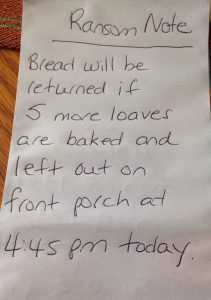 Ransom Note
Bread will be
returned if
5 more loaves
are baked and
left out on
front porch at
4:45 pm today.